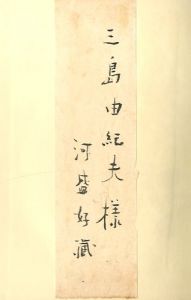 三島由紀夫様
河盛好蔵